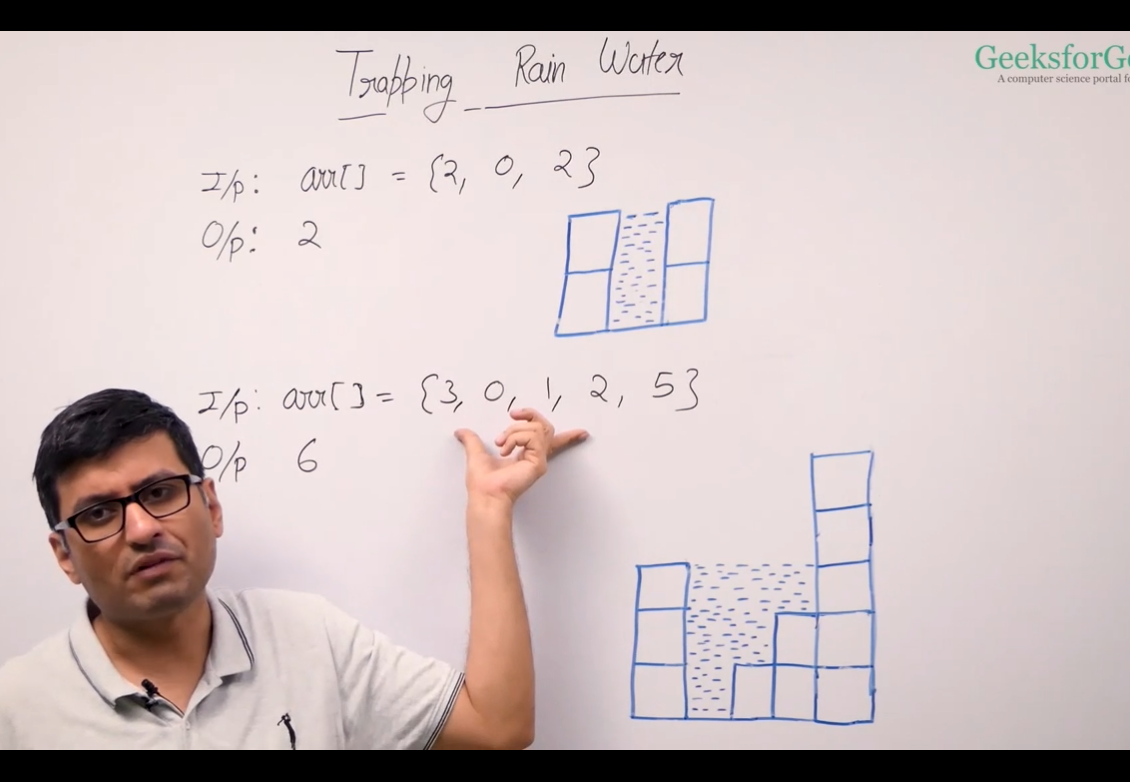 Trapping Rain Water
GeeksforGe
A computer science portal fo
I/p: arr[] = {2, 0, 2}
O/p: 2
I/p: arr[] = {3, 0, 1, 2, 5}
O/p 6